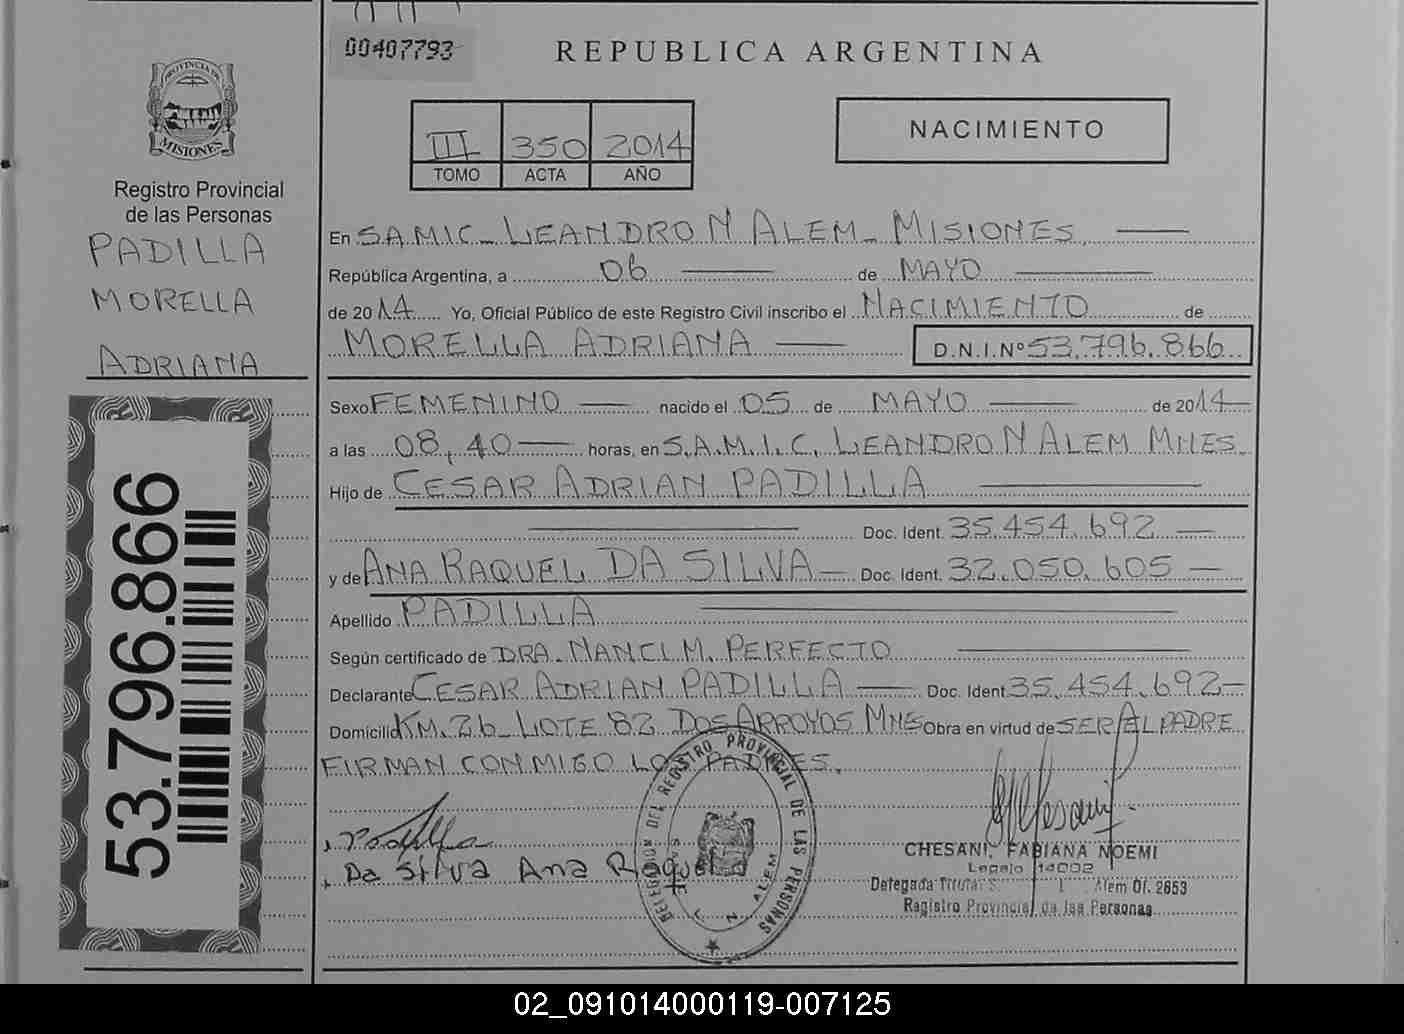 00407793
REPUBLICA ARGENTINA
PROVINCIA DE
MISIONES
Registro Provincial
de las Personas
PADILLA
MORELLA
ADRIANA
III 350 2014
TOMO ACTA AÑO
NACIMIENTO
En S.A.M.I.C. LEANDRO N ALEM - MISIONES
República Argentina, a 06 de MAYO
de 2014 Yo, Oficial Público de este Registro Civil inscribo el NACIMIENTO de
MORELLA ADRIANA D.N.I.Nº 53.796.866
Sexo FEMENINO nacido el 05 de MAYO de 2014
a las 08,40 horas, en S.A.M.I.C. LEANDRO N ALEM MNES.
Hijo de CESAR ADRIAN PADILLA
Doc. Ident. 35.454.692
y de ANA RAQUEL DA SILVA Doc. Ident. 32.050.605
Apellido PADILLA
Según certificado de DRA. NANCI M. PERFECTO
Declarante CESAR ADRIAN PADILLA Doc. Ident 35.454.692
Domicilio KM. 26 - LOTE 82 DOS ARROYOS MNES Obra en virtud de SER EL PADRE
FIRMAN CONMIGO LOS PADRES.
Padilla
Da Silva Ana Raquel
DELEGACION DEL REGISTRO PROVINCIAL DE LAS PERSONAS
L. N. ALEM
CHESANI, FABIANA NOEMI
Legajo 14092
Delegada Titular Alem Of. 2653
Registro Provincial de las Personas
53.796.866
02_091014000119-007125